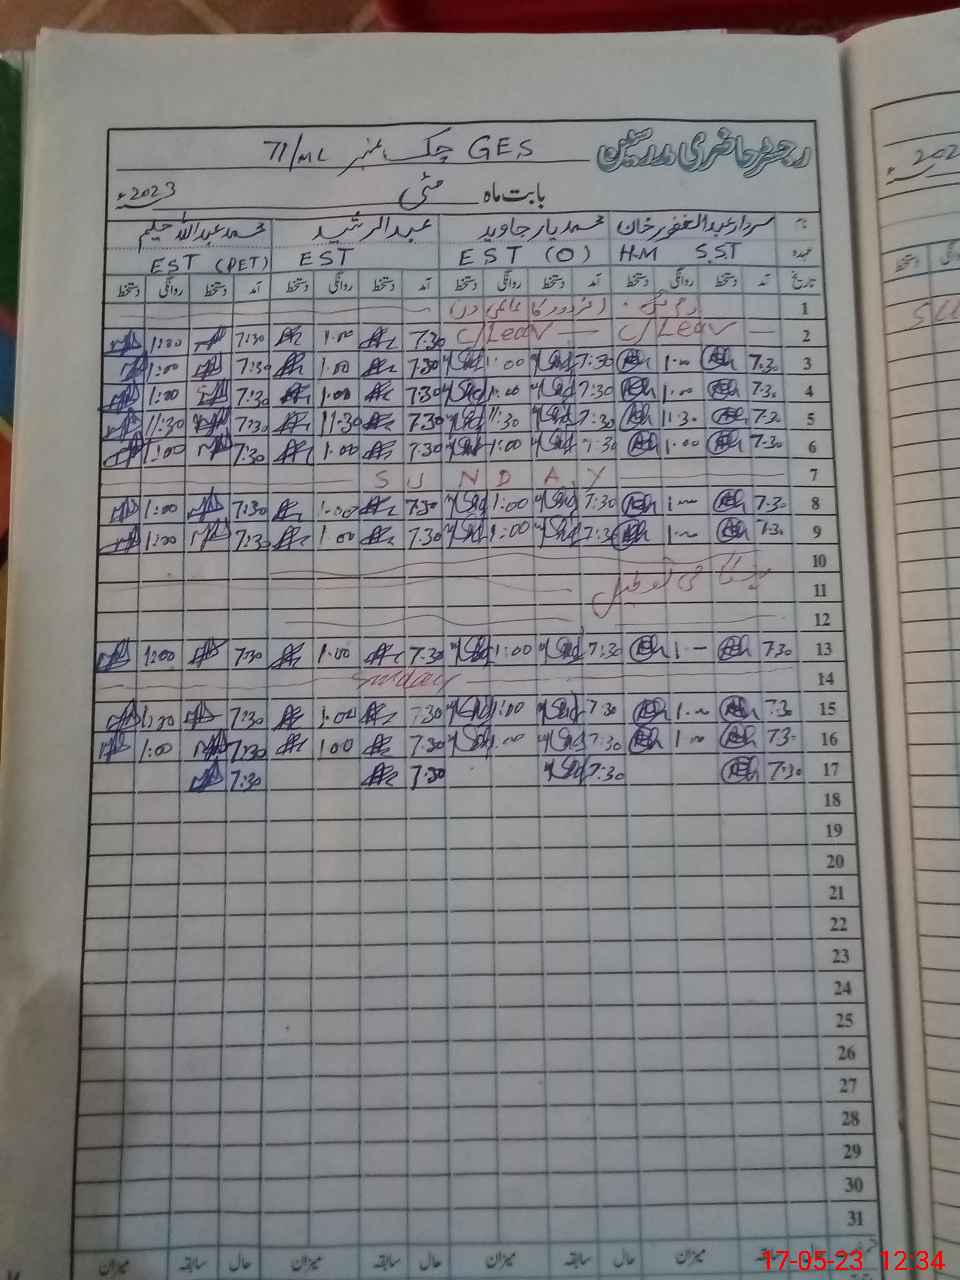 رجسٹر حاضری مدرسین GES چک نمبر 71/ML
بابت ماہ مئی 2023ء
نام سردار عبدالغفور خان محمد یار جاوید عبدالرشید محمد عبداللہ حلیم
عہدہ H.M S.ST EST (O) EST EST (PET)
تاریخ آمد دستخط روانگی دستخط آمد دستخط روانگی دستخط آمد دستخط روانگی دستخط آمد دستخط روانگی دستخط
1
2 C/Leav C/Leav 7.30 1.00 7:30 1:00
3 7.30 1.00 7:30 1:00 7.30 1.00 7:30 1:00
4 7.30 1.00 7:30 1:00 7.30 1.00 7:30 1:00
5 7.30 11.30 7:30 11:30 7.30 11.30 7:30 11:30
6 7.30 1.00 7:30 1:00 7.30 1.00 7:30 1:00
7 SUNDAY
8 7.30 1.00 7:30 1:00 7.30 1.00 7:30 1:00
9 7.30 1.00 7:30 1:00 7.30 1.00 7:30 1:00
10
11
12
13 7.30 1.00 7:30 1:00 7.30 1.00 7:30 1:00
14 Sunday
15 7.30 1.00 7:30 1:00 7.30 1.00 7:30 1:00
16 7.30 1.00 7:30 1:00 7.30 1.00 7:30 1:00
17 7.30 7:30 7.30 7:30
18
19
20
21
22
23
24
25
26
27
28
29
30
31
حال سابقہ میزان حال سابقہ میزان حال سابقہ میزان حال سابقہ میزان
17-05-23 12:34